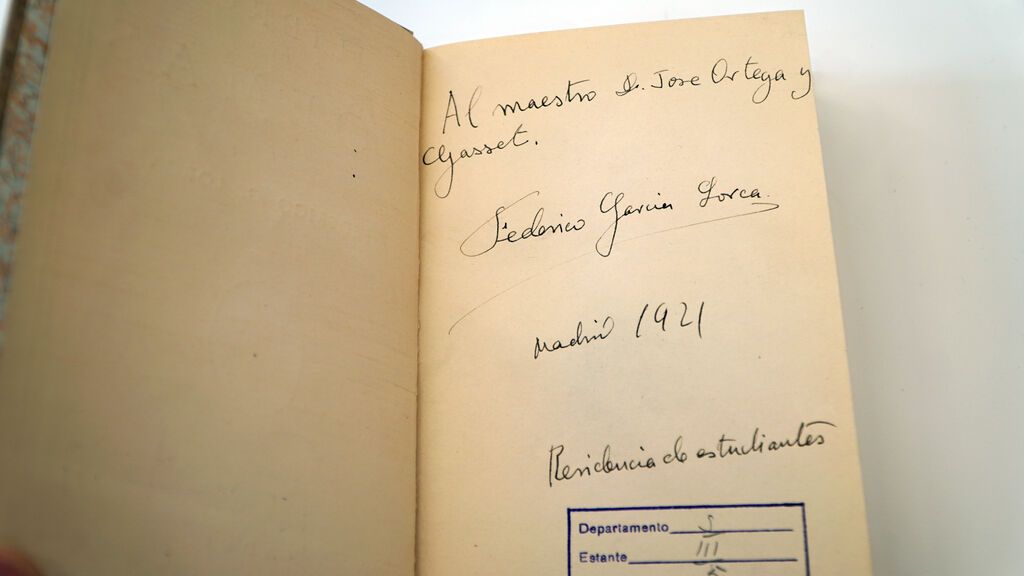 Al maestro D. Jose Ortega y
Gasset.
Federico García Lorca.
Madrid 1921
Residencia de estudiantes
Departamento J
Estante III
5